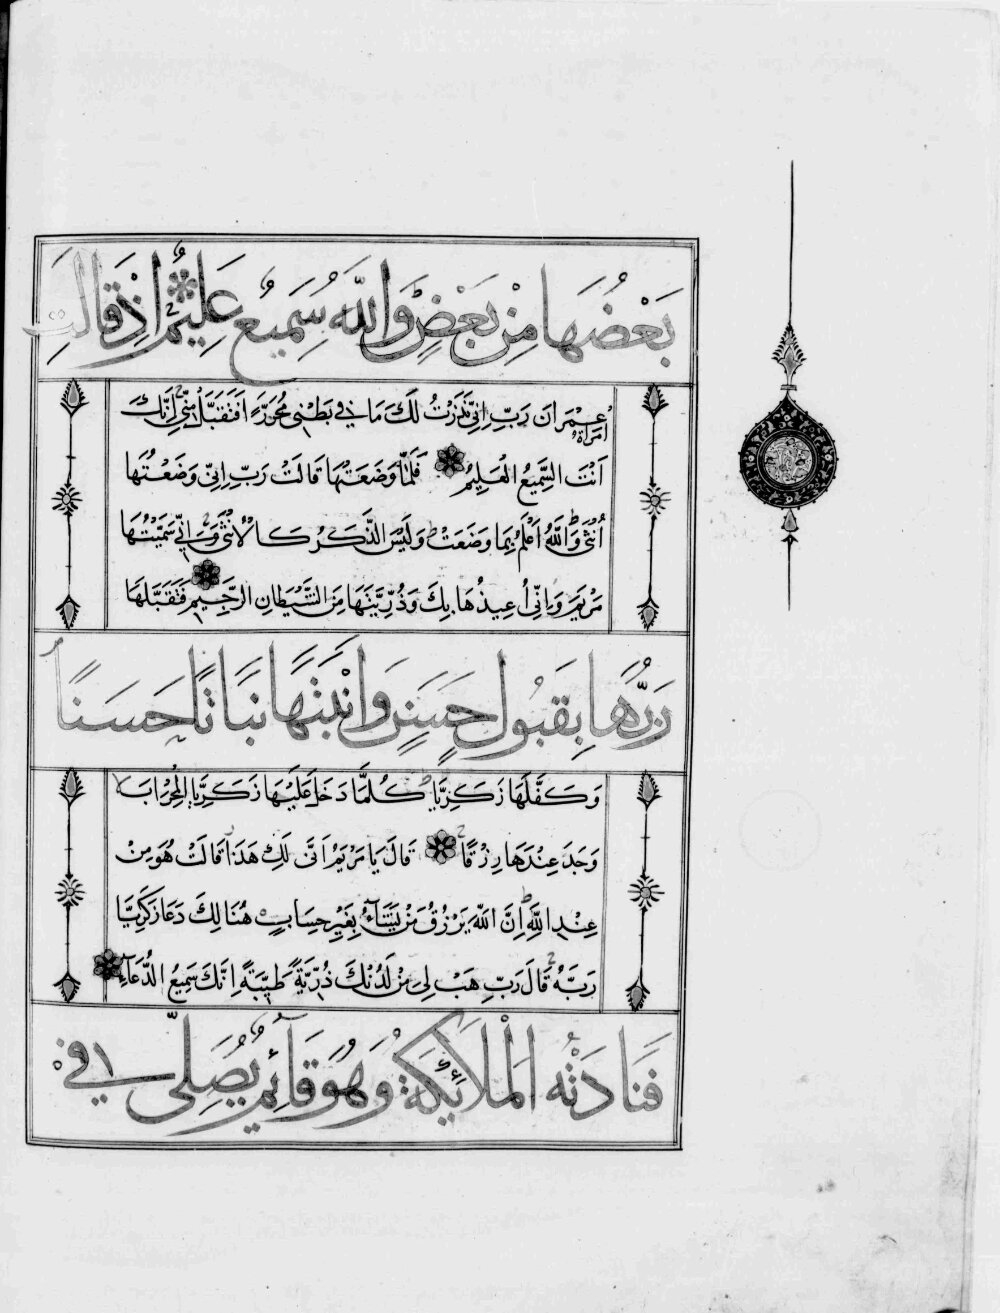 بَعْضُهَا مِنْ بَعْضٍ وَاللَّهُ سَمِيعٌ عَلِيمٌ اِذْ قَالَتِ
امْرَاَةُ عِمْرَانَ رَبِّ اِنِّي نَذَرْتُ لَكَ مَا فِي بَطْنِي مُحَرَّرًا فَتَقَبَّلْ مِنِّي اِنَّكَ
اَنْتَ السَّمِيعُ الْعَلِيمُ فَلَمَّا وَضَعَتْهَا قَالَتْ رَبِّ اِنِّي وَضَعْتُهَا
اُنْثَى وَاللَّهُ اَعْلَمُ بِمَا وَضَعَتْ وَلَيْسَ الذَّكَرُ كَالْاُنْثَى وَاِنِّي سَمَّيْتُهَا
مَرْيَمَ وَاِنِّي اُعِيذُهَا بِكَ وَذُرِّيَّتَهَا مِنَ الشَّيْطَانِ الرَّجِيمِ فَتَقَبَّلَهَا
رَبُّهَا بِقَبُولٍ حَسَنٍ وَاَنْبَتَهَا نَبَاتًا حَسَنًا
وَكَفَّلَهَا زَكَرِيَّا كُلَّمَا دَخَلَ عَلَيْهَا زَكَرِيَّا الْمِحْرَابَ
وَجَدَ عِنْدَهَا رِزْقًا قَالَ يَا مَرْيَمُ اَنَّى لَكِ هَذَا قَالَتْ هُوَ مِنْ
عِنْدِ اللَّهِ اِنَّ اللَّهَ يَرْزُقُ مَنْ يَشَاءُ بِغَيْرِ حِسَابٍ هُنَالِكَ دَعَا زَكَرِيَّا
رَبَّهُ قَالَ رَبِّ هَبْ لِي مِنْ لَدُنْكَ ذُرِّيَّةً طَيِّبَةً اِنَّكَ سَمِيعُ الدُّعَاءِ
فَنَادَتْهُ الْمَلَائِكَةُ وَهُوَ قَائِمٌ يُصَلِّي فِي